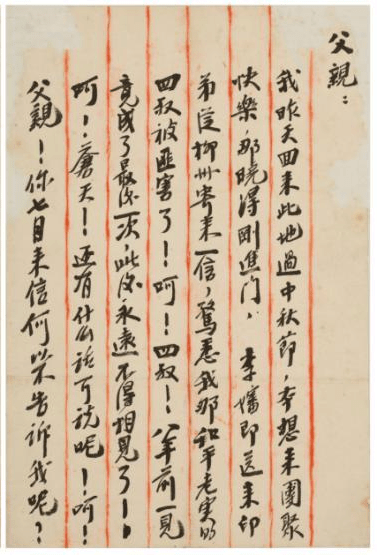 父親：
我昨天回来此地過中秋節，本想来團聚
快樂，那曉得剛進門，李嬸即送来印
弟從柳州寄来一信，驚悉我那和平老実的
四叔被匪害了！呵！四叔！八年前一見
竟成了最後一次，此後永遠不得相見了！！
呵！蒼天！还有什么話可説呢！呵！
父親！你七月来信何以不告訴我呢？